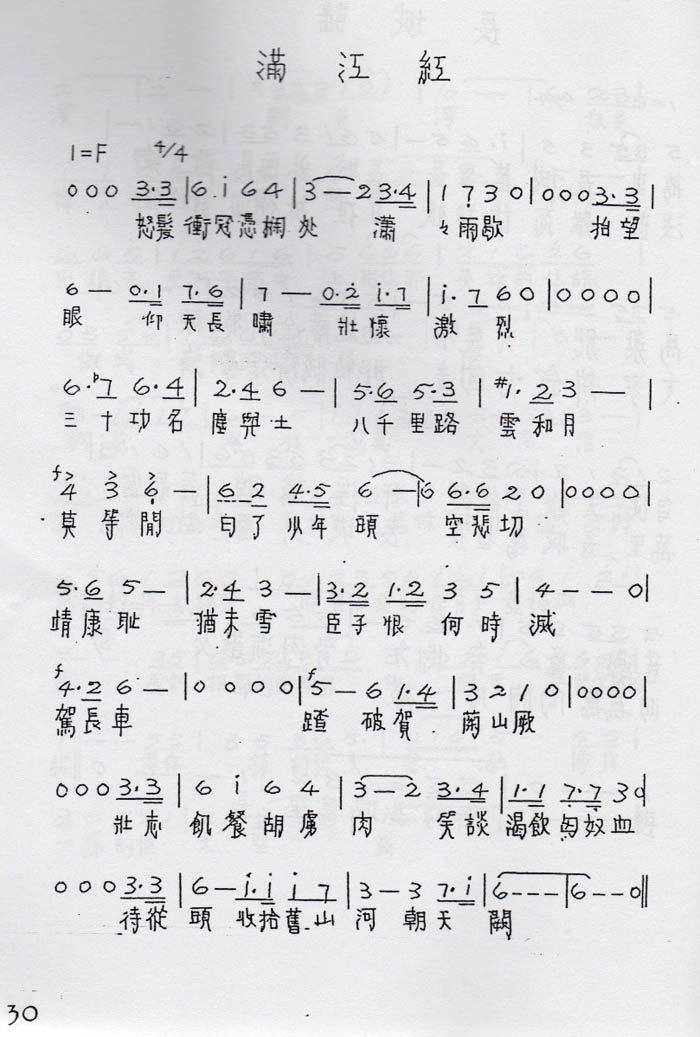 滿江紅
1=F 4/4
0 0 0 3.3 | 6 i 6 4 | 3 — 2 3.4 | 1 7 3 0 | 0 0 0 3.3 |
怒髮 衝冠憑捫处 瀟 々雨歇 抬望
6 — 0.1 7.6 | 7 — 0.2 i.7 | i.7 6 0 | 0 0 0 0 |
眼 仰天長 嘯 壯懷 激烈
6.♭7 6.4 | 2.4 6 — | 5.6 5.3 | #1.2 3 — |
三十功名 塵與土 八千里路 雲和月
f 4 3 6 — | 6.2 4.5 6 — | 6 6.6 2 0 | 0 0 0 0 |
莫等閒 白了少年頭 空悲切
5.6 5 — | 2.4 3 — | 3.2 1.2 3 5 | 4 — — 0 |
靖康耻 猶未雪 臣子恨 何時滅
f 4.2 6 — | 0 0 0 0 | f 5 — 6 1.4 | 3 2 1 0 | 0 0 0 0 |
駕長車 踏破賀 蘭山厥
0 0 0 3.3 | 6 i 6 4 | 3 — 2 3.4 | 1.1 7.7 3 0 |
壯志 飢餐胡虜 肉 笑談 渴飲匈奴血
0 0 0 3.3 | 6 — i.i i 7 | 3 — 3 7.i | 6 — — — | 6 — — 0 ‖
待從 頭 收拾舊山 河 朝天 闕
30